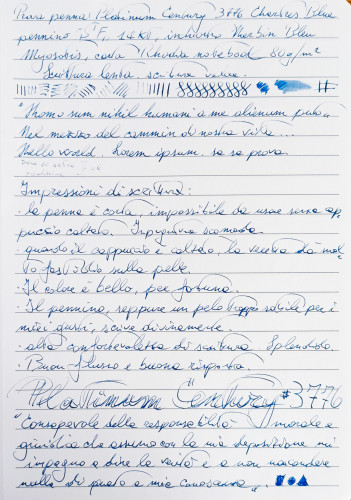 Prova penna Platinum Century 3776 Chartres Blue
pennino F, 14 Kt, inchiostro Herbin Bleu
Myosotis, carta Rhodia notebook 80 g/m²
Scrittura lenta, scrittura veloce.
"Homo sum nihil humani a me alienum puto"
Nel mezzo del cammin di nostra vita...
Hello world. Lorem ipsum. sa sa prova
Impressioni di scrittura:
· la penna è corta, impossibile da usare senza cap
puccio calzato. Impugnatura scomoda.
· quando il cappuccio è calzato, la vedo da mol
to fastidio sulla pelle.
· Il colore è bello, per fortuna.
· Il pennino, seppure un pelo troppo sottile per i
miei gusti, scrive divinamente.
· alta confortevolezza di scrittura. Splendido.
· Buon flusso e buona risposta.
Platinum Century #3776
"Consapevole della responsabilità morale e
giuridica che assumo con la mia deposizione mi
impegno a dire la verità e a non nascondere
nulla di quanto a mia conoscenza".